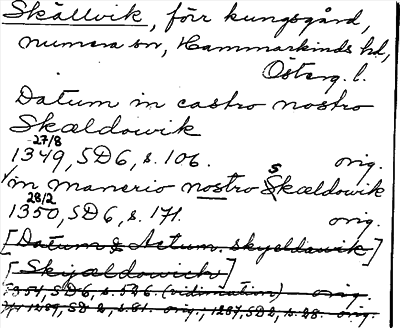 Skällvik, förr kungsgård,
numera sn, Hammarkinds hd,
Österg. l.
Datum in castro nostro
Skældowik
27/8
1349, SD 6, s. 106. orig.
in manerio nostro Skældowik
28/2
1350, SD 6, s. 171. orig.
[Datum & Actum. skyeldauik]
[Skijældowich]
1354, SD 6, s. 526. (vidimation) orig.
1289, SD 2, s. 81. orig., 1287, SD 2, s. 28. orig.